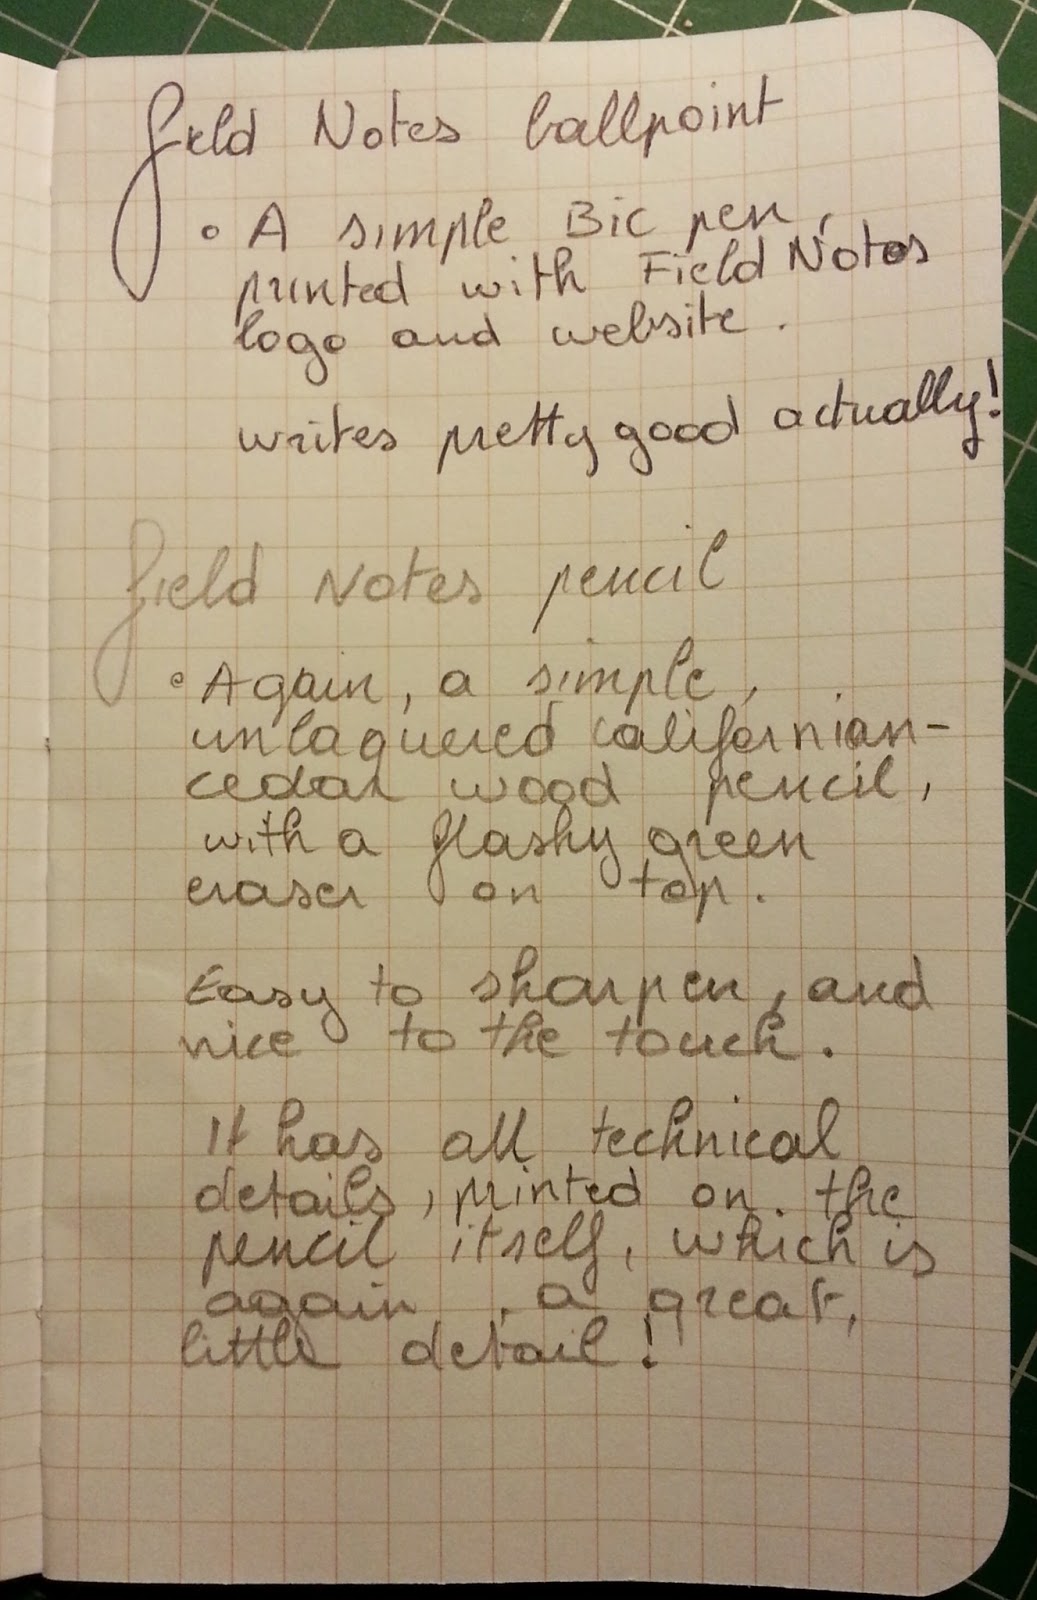 Field Notes ballpoint
• A simple Bic pen,
printed with Field Notes
logo and website.
writes pretty good actually!
Field Notes pencil
• Again, a simple,
unlaquered californian-
cedar wood pencil,
with a flashy green
eraser on top.
Easy to sharpen, and
nice to the touch.
It has all technical
details, printed on the
pencil itself, which is
again, a great,
little detail!